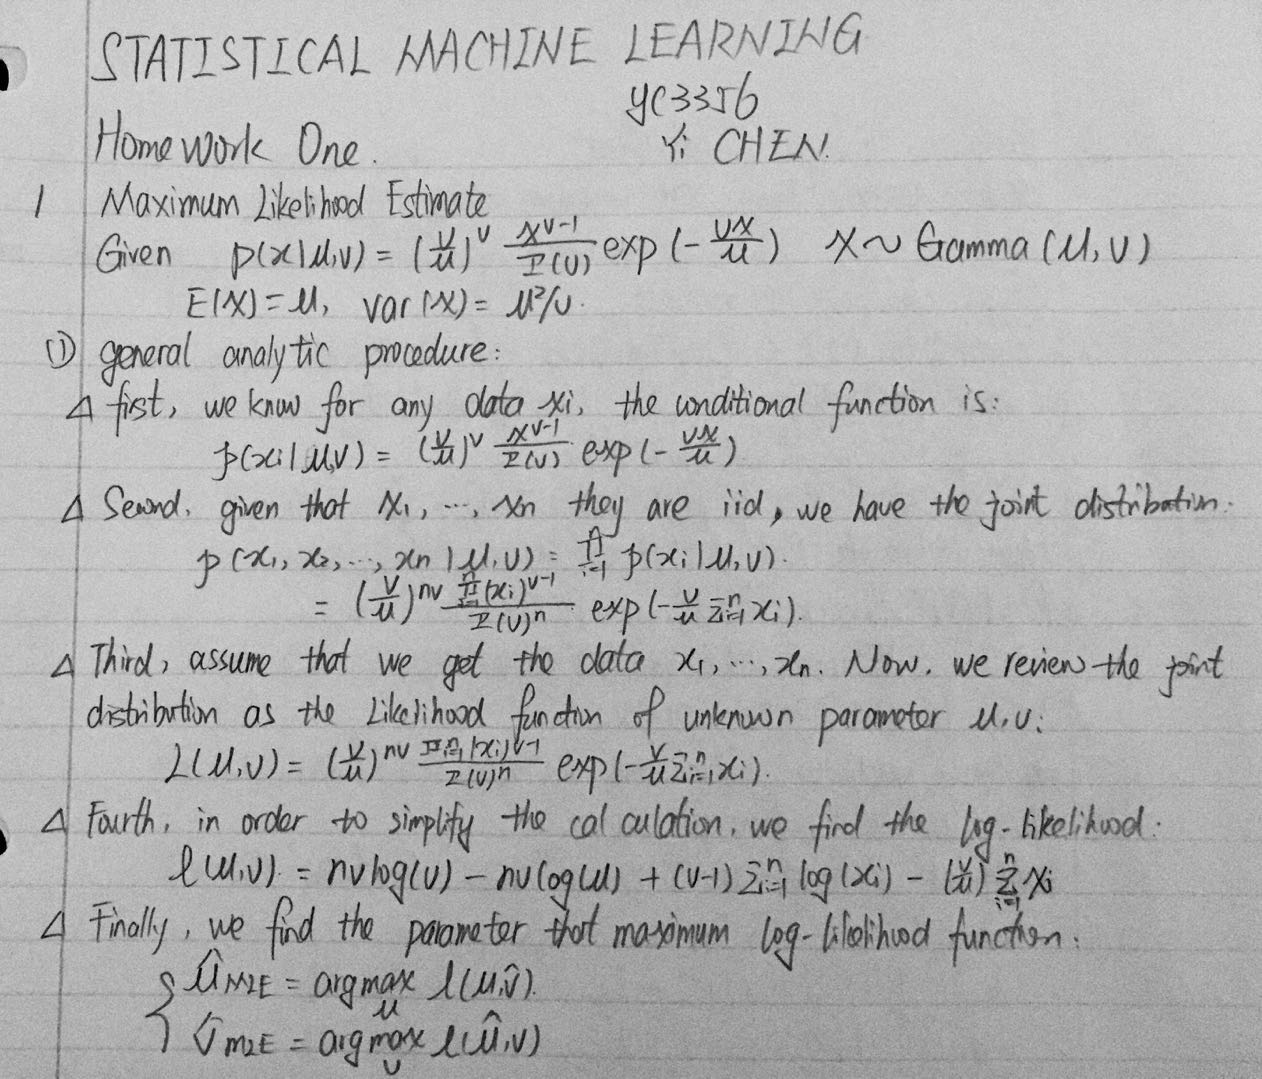 STATISTICAL MACHINE LEARNING
yc3356
Homework One.
Yi CHEN.
1 Maximum Likelihood Estimate
Given p(x|μ,ν) = (ν/μ)^ν x^(ν-1)/Γ(ν) exp(-νx/μ) X~Gamma(μ,ν)
E(X)=μ, var(X)=μ²/ν.
① general analytic procedure:
Δ first, we know for any data xi, the conditional function is:
p(xi|μ,ν) = (ν/μ)^ν x^(ν-1)/Γ(ν) exp(-νx/μ)
Δ Second, given that x₁, ..., xn they are iid, we have the joint distribution.
p(x₁, x₂, ..., xn | μ,ν) = ∏ⁿᵢ₌₁ p(xi|μ,ν).
= (ν/μ)^(nν) ∏ⁿᵢ₌₁(xi)^(ν-1)/Γ(ν)^n exp(-ν/μ Σⁿᵢ₌₁ xi).
Δ Third, assume that we get the data x₁, ..., xn. Now, we review the joint
distribution as the Likelihood function of unknown parameter μ,ν:
L(μ,ν) = (ν/μ)^(nν) ∏ⁿᵢ₌₁(xi)^(ν-1)/Γ(ν)^n exp(-ν/μ Σⁿᵢ₌₁ xi).
Δ Fourth, in order to simplify the calculation, we find the log-likelihood:
ℓ(μ,ν) = nνlog(ν) - nνlog(μ) + (ν-1) Σⁿᵢ₌₁ log(xi) - (ν/μ) Σⁿᵢ₌₁ xi
Δ Finally, we find the parameter that maximum log-likelihood function:
{ μ̂ MLE = argmax μ ℓ(μ,ν̂).
ν̂ MLE = argmax ν ℓ(μ̂,ν)